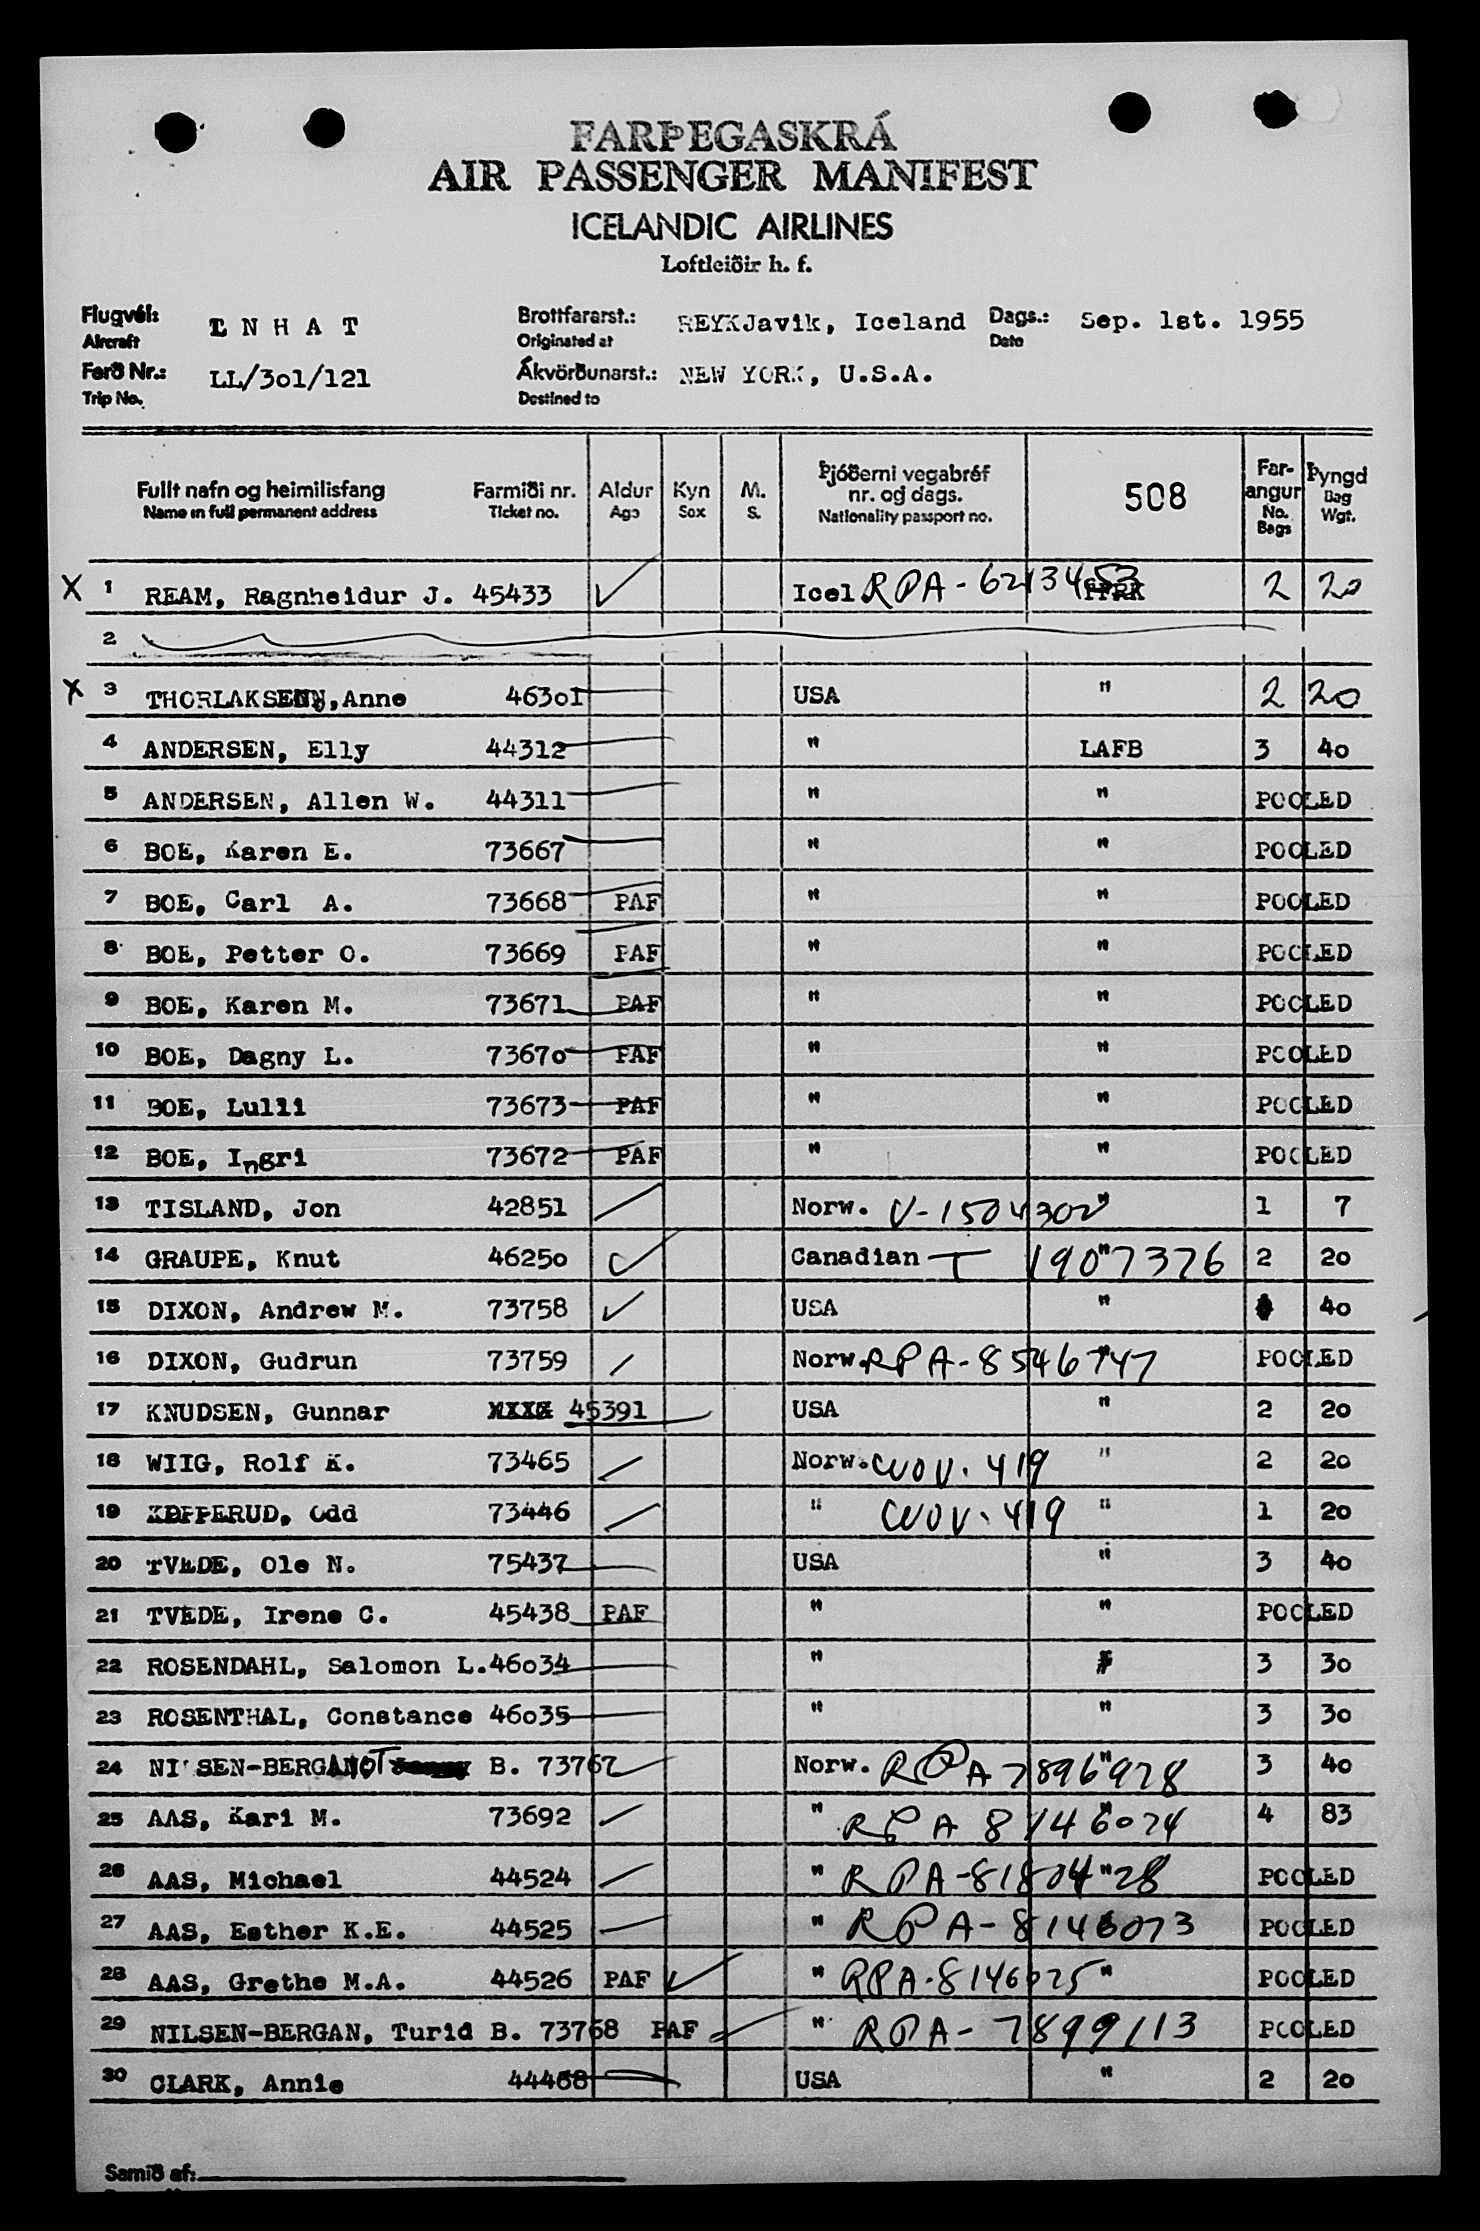 FARÞEGASKRÁ
AIR PASSENGER MANIFEST
ICELANDIC AIRLINES
Loftleiðir h. f.
Flugvél: L N H A T Brottfararst.: REYKJavik, Iceland Dags.: Sep. 1st. 1955
Aircraft Originated at Date
Ferð Nr.: LL/3o1/121 Ákvörðunarst.: NEW YORK, U.S.A.
Trip No. Destined to
Fullt nafn og heimilisfang Farmiði nr. Aldur Kyn M. Þjóðerni vegabréf nr. og dags. 508 Far-angur Þyngd
Name in full permanent address Ticket no. Age Sex S. Nationality passport no. No. Bags Bag Wgt.
X 1 REAM, Ragnheidur J. 45433 Icel RPA-62134 2 20
2
X 3 THORLAKSEN, Anne 463o1 USA " 2 20
4 ANDERSEN, Elly 44312 " LAFB 3 4o
5 ANDERSEN, Allen W. 44311 " " POOLED
6 BOE, Karen E. 73667 " " POOLED
7 BOE, Carl A. 73668 PAF " " POOLED
8 BOE, Petter O. 73669 PAF " " POOLED
9 BOE, Karen M. 73671 PAF " " POOLED
10 BOE, Dagny L. 7367o PAF " " POOLED
11 BOE, Lulli 73673 PAF " " POOLED
12 BOE, Ingri 73672 PAF " " POOLED
13 TISLAND, Jon 42851 Norw. V-1504302 " 1 7
14 GRAUPE, Knut 4625o Canadian T 1907376 " 2 2o
15 DIXON, Andrew M. 73758 USA " 4o
16 DIXON, Gudrun 73759 Norw. RPA-8546747 " POOLED
17 KNUDSEN, Gunnar 45391 USA " 2 2o
18 WIIG, Rolf K. 73465 Norw. CUOV. 419 " 2 2o
19 KEPPERUD, Odd 73446 " CUOV. 419 " 1 2o
20 TVEDE, Ole N. 75437 USA " 3 4o
21 TVEDE, Irene C. 45438 PAF " " POOLED
22 ROSENDAHL, Salomon L. 46o34 " " 3 3o
23 ROSENTHAL, Constance 46o35 " " 3 3o
24 NILSEN-BERGAN B. 73767 Norw. RPA 7896928 " 3 4o
25 AAS, Kari M. 73692 " RPA 8146074 " 4 83
26 AAS, Michael 44524 " RPA-8180428 " POOLED
27 AAS, Esther K.E. 44525 " RPA-8146073 POOLED
28 AAS, Grethe M.A. 44526 PAF " RPA-8146075 " POOLED
29 NILSEN-BERGAN, Turid B. 73768 PAF " RPA-7899113 POOLED
30 CLARK, Annie 44468 USA " 2 2o
Samið af: